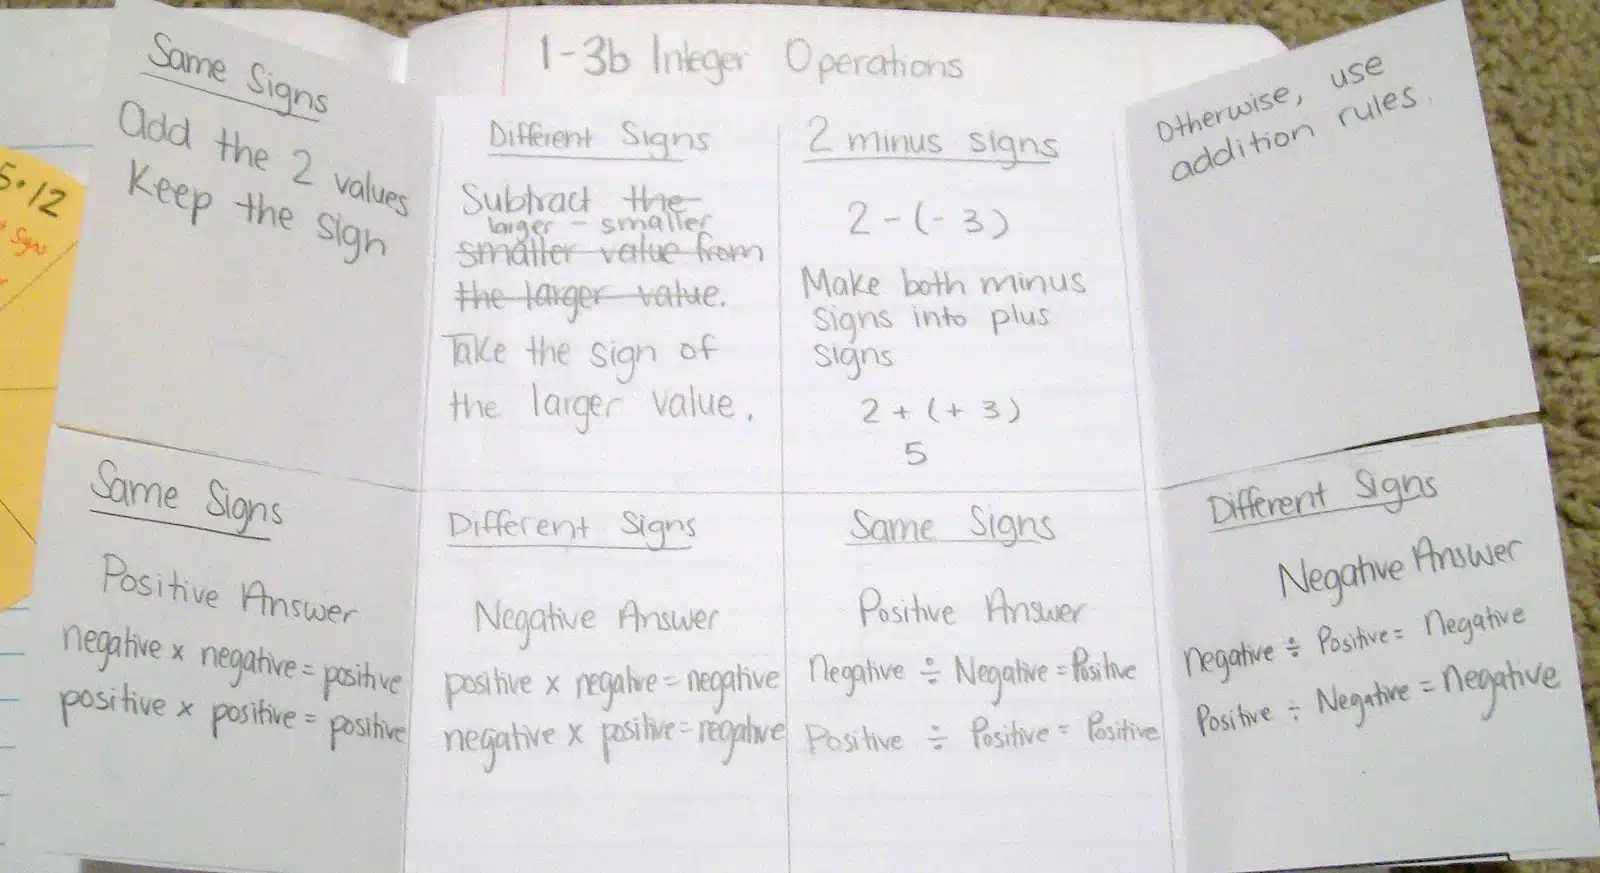 1-3b Integer Operations
Same Signs
Add the 2 values
Keep the sign
Different Signs
Subtract the
larger - smaller
smaller value from
the larger value.
Take the sign of
the larger value.
2 minus signs
2 - (- 3)
Make both minus
signs into plus
signs
2 + (+ 3)
5
Otherwise, use
addition rules.
Same Signs
Positive Answer
negative x negative = positive
positive x positive = positive
Different Signs
Negative Answer
positive x negative = negative
negative x positive = negative
Same Signs
Positive Answer
Negative ÷ Negative = Positive
Positive ÷ Positive = Positive
Different Signs
Negative Answer
Negative ÷ Positive = Negative
Positive ÷ Negative = Negative
5•12
Signs